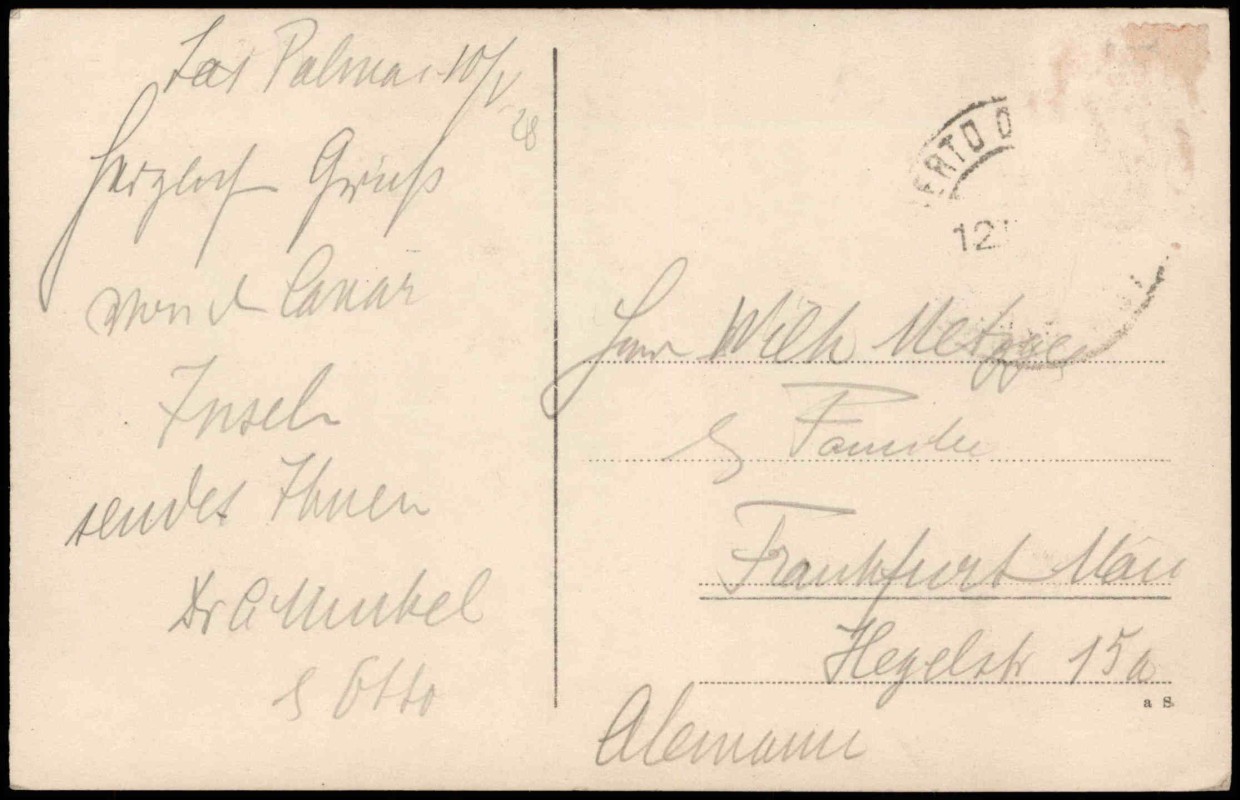 Las Palmas 10/V
28
Herzlich Gruß
von d Canar
Inseln
sendet Ihnen
Dr A Munkel
& Otto
ERTO D
12
Herr Wilh Metzger
& Familie
Frankfurt Main
Hegelstr 15a
a S.
Alemann